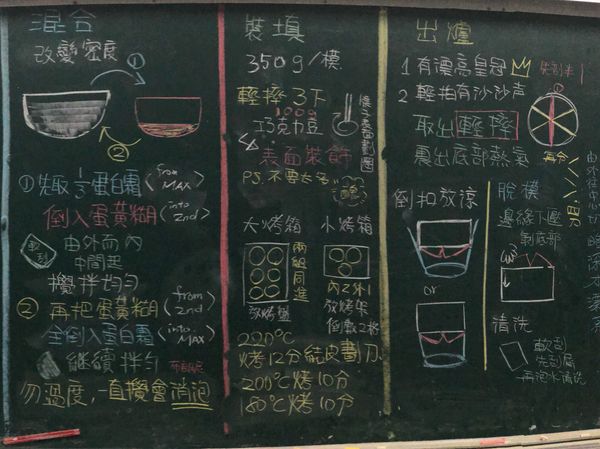 混合
改變密度
①
②
①先取⅓蛋白霜(from MAX)
倒入蛋黃糊(into 2nd)
軟刮
由外而內
中間起
攪拌均勻
②再把蛋黃糊(from 2nd)
全倒入蛋白霜(into MAX)
繼續拌勻
勿過度,一直攪會消泡
裝填
350g/模
輕摔3下
100g
巧克力豆
表面裝飾
PS.不要太多
大烤箱
小烤箱
兩組同進
放烤盤
內2外1
放烤架
倒數2格
220℃
烤12分結皮劃刀
200℃烤10分
180℃烤10分
出爐
1有漂高皇冠
2輕拍有沙沙声
取出輕摔
裏出底部熱氣
倒扣放涼
or
脫模
邊緣下壓
剝底部
清洗
軟刮
先刮屑
再泡水清洗